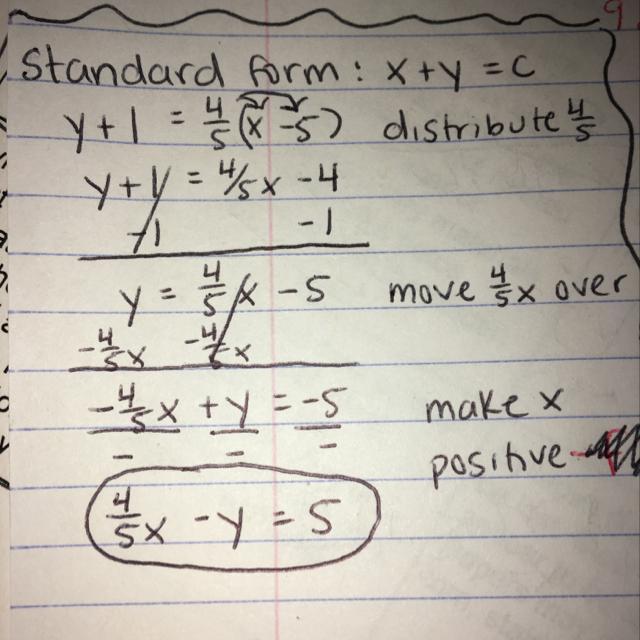 9
standard form: x+y=c
y+1 = 4/5(x-5) distribute 4/5
y+1 = 4/5x -4
-1 -1
y = 4/5x -5 move 4/5x over
-4/5x -4/5x
-4/5x +y = -5 make x
- - - positive
4/5x -y = 5